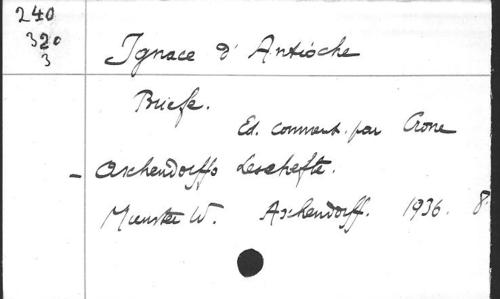 240
320
3
Ignace d'Antioche
Briefe.
Ed. comment. par Crone
- Aschendorffs Lesehefte.
Munster W. Aschendorff. 1936. 8.